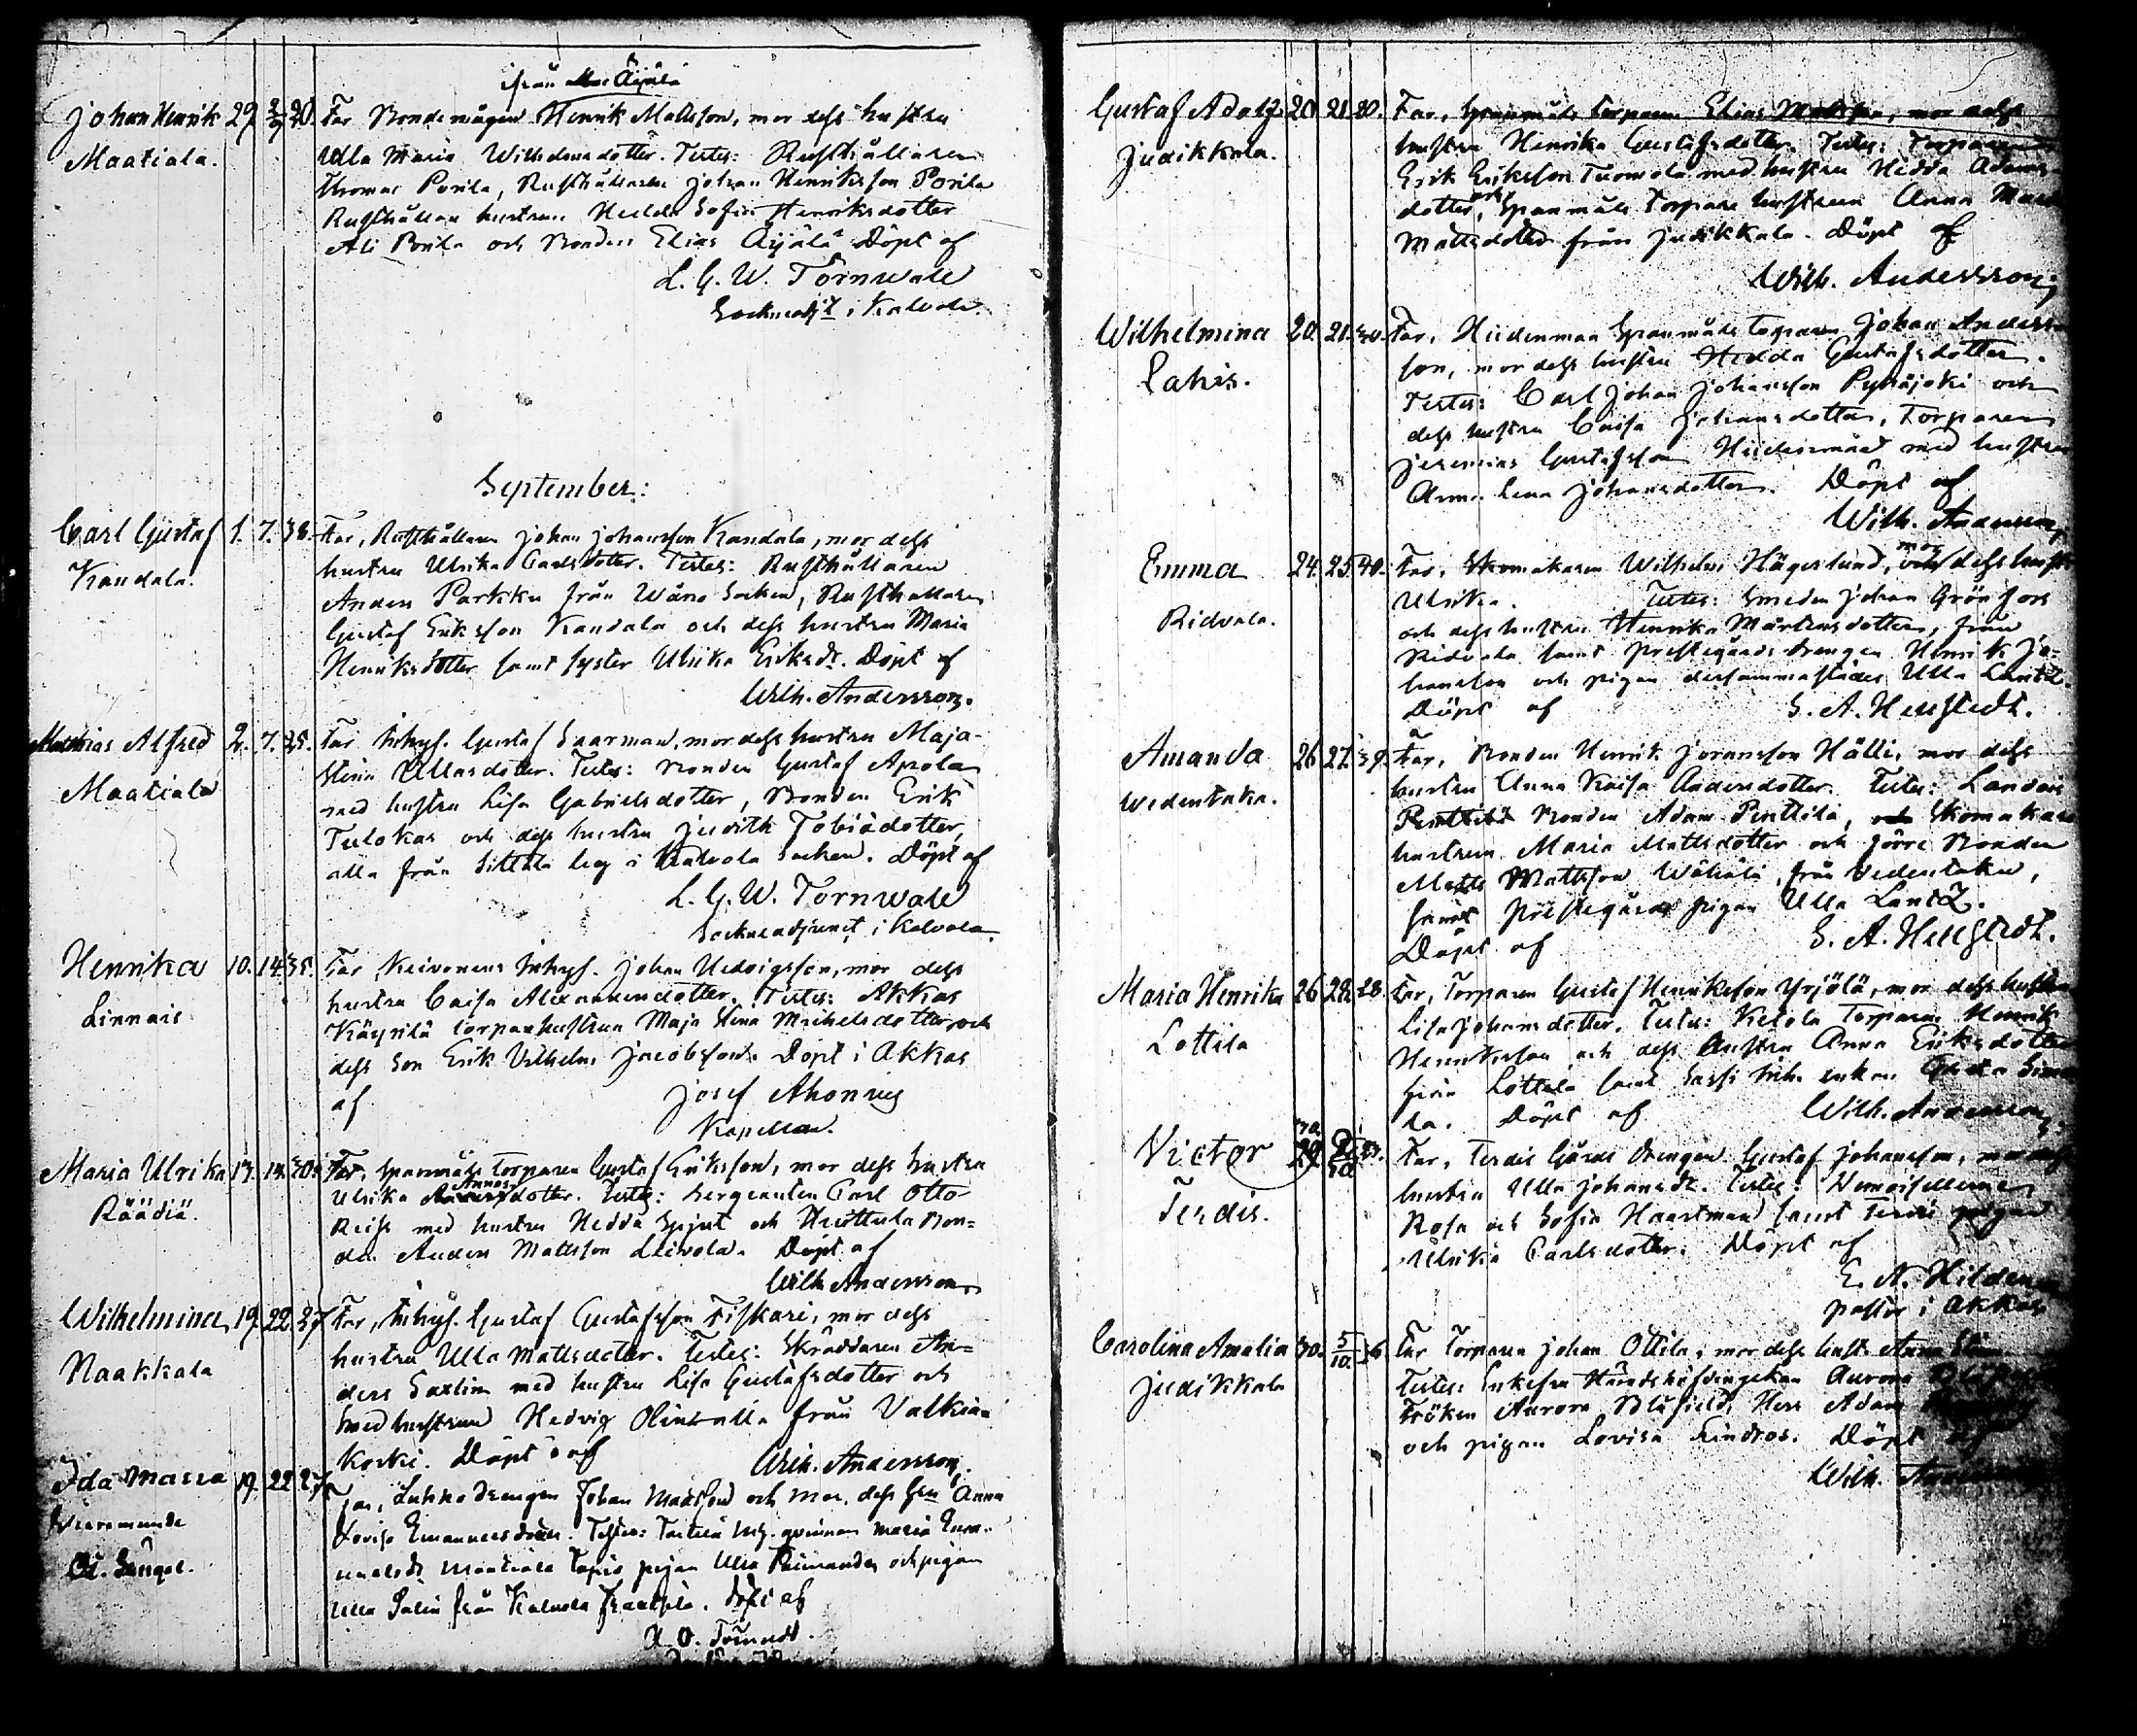 från Äijälä
Johan Henrik 29. 2/9 20. Far Bondemågen Henrik Mattsson, mor dess hustru
Maatiala. Ulla Maria Wilhelmsdotter. Testes: Rusthållaren
Thomas Porila, Rusthållaren Johan Henriksson Porila
Rusthållare hustrun Hedda Sofia Henriksdotter
Ali Porila och Bonden Elias Äijälä Döpt af
L. G. W. Törnwall
Sockneadj:t i Kalvola.
September:
Carl Gustaf 1. 7. 38. Far, Rusthållaren Johan Johansson Kandala, mor dess
Kandala. hustru Ulrika Carlsdotter. Testes: Rusthållaren
Anders Parkku från Wånå Socken, Rusthållaren
Gustaf Eriksson Kandala och dess hustru Maria
Henriksdotter samt syster Ulrika Eriksdr. Döpt af
Wilh. Andersson.
Mathias Alfred 2. 7. 25. Far Inhys. Gustaf Saarman, mor dess hustru Maja-
Maatiala Stina dotter. Testes: Bonden Gustaf Anola
med hustru Lisa Gabrielsdotter, Bonden Erik
Tulokas och dess hustru Judith Tobiädotter,
alla från Sittala by i Kalvola Socken. Döpt af
L. G. W. Törnwall
Sockneadjunct i Kalvola.
Henrika 10. 14. 35. Far Keivonens Inhys. Johan Hedvigsson, mor dess
Linnais hustru Caisa Alexandersdotter. Testes: Akkas
Käyrilä torparhustrun Maja Stina Michelsdotter och
dess son Erik Vilhelm Jacobsson. Döpt i Akkas
af Josef Ahonius
Kapellan.
Maria Ulrika 13. 14. 30. Far, Spanmåls torparen Gustaf Eriksson, mor dess hustru
Räädiä. Ulrika Annasdotter. Testes: Sergeanten Carl Otto
Reiss med hustru Hedda Spjut och Huittula Bon=
den Anders Mattsson Leivola. Döpt af
Wilh Andersson
Wilhelmina 19. 22. 27. Far, Inhys. Gustaf Gustafsson Fiskari, mor dess
Naakkala hustru Ulla Mattsdotter. Testes: Skräddaren An=
ders Saxlin med hustru Lisa Gustafsdotter och
Smedhustrun Hedvig från Valkia=
koski. Döpt af Wilh. Andersson.
Ida Maria 19. 22 27. Far, Luhko Drengen Johan Mattsson och mor, dess hu Anna
Lovisa Emanuelsdotter. Testes: Inh. qvinnan Maria Ema-
nuelsdr Maatiala Tapio pigan Ulla och pigan
Ulla Salin från Kalvola. Döpt af
Gustaf Adolf 20. 21. 30. Far, Spanmåls torparen Elias Mattsson, mor dess
Judikkala. hustru Henrika Gustafsdotter. Testes: Torparen
Erik Eriksson Tuomola med hustru Hedda Adams-
dotter, och Spanmåls Torpare hustrun Anna
Mattsdotter från Judikkala. Döpt af
Wilh. Andersson,
Wilhelmina 20. 21. 30. Far, Hiidenmaa Spanmåls torparen Johan Anders-
Lahis. son, mor dess hustru Hedda Gustafsdotter.
Testes: Carl Johan Johansson Pyhäjoki och
dess hustru Caisa Johansdotter, Torparen
Jeremias Gustafsson Hiidenmaa med hustru
Anna Lena Johansdotter. Döpt af
Wilh. Andersson,
Emma 24. 25. 40. Far, Skomakaren Wilhelm Hägerlund, mor dess hust
Ridvala. Ulrika. Testes: Smeden Johan Grönfors
och dess hustru Henrika Mårtensdotter, från
Ridvala samt Prestegårds drengen Henrik Jo=
hansson och pigan dersammastädes Ulla Lantz.
Döpt af S. A. Hellstedt.
Amanda 26 27. 39. Far, Bonden Henrik Joransson Hälli, mor dess
Wedentaka. hustru Anna Kaisa Andersdotter. Testes:
Bonden Adam Penttilä, Skomakare
hustrun Maria Mattsdotter och förre Bonden
Matts Mattsson från Vedentaka,
samt Prestegårds pigan Ulla Lantz.
Döpt af S. A. Hellstedt.
Maria Henrika 26 28. 28. Far, Torparen Gustaf Henriksson Yrjölä, mor dess hustru
Lottila Lisa Johansdotter. Testes: Ketola Torparen Henrik
Henriksson och dess hustru Anna Eriksdotter
från Lottila samt Sassi Inh. enkan Greta
Döpt af Wilh. Andersson,
Victor 29 2/10 Far, Terdis Gårds drengen Gustaf Johansson, mor dess
Terdis. hustru Ulla Johansdr. Testes: Demoisellerna
Rosa och Sofia Haartman samt Terdis pigan
Ulrika Carlsdotter. Döpt af
E. A. Hilden
pastor i Akkas
Carolina Amalia 30. 5/10. 36 Far Torparen Johan Ottila, mor dess hust. Anna
Judikkala Testes: Enkefru Häradshöfdingskan Aurora
Fröken Aurora Blåfield, Herr Adam
och pigan Lovisa Lindros. Döpt af
Wilh.